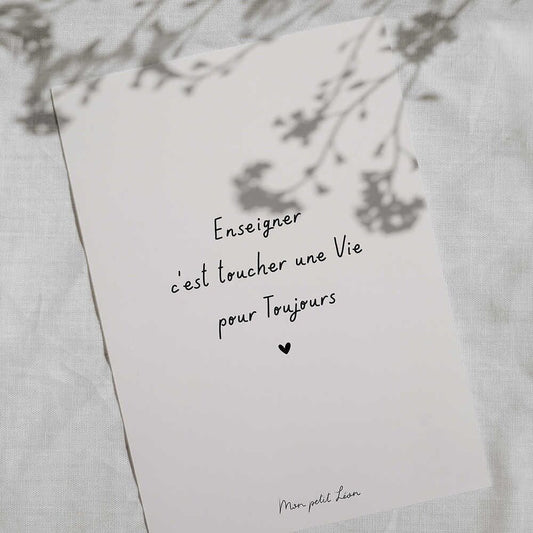 Enseigner
c'est toucher une Vie
pour Toujours
Mon petit Léon